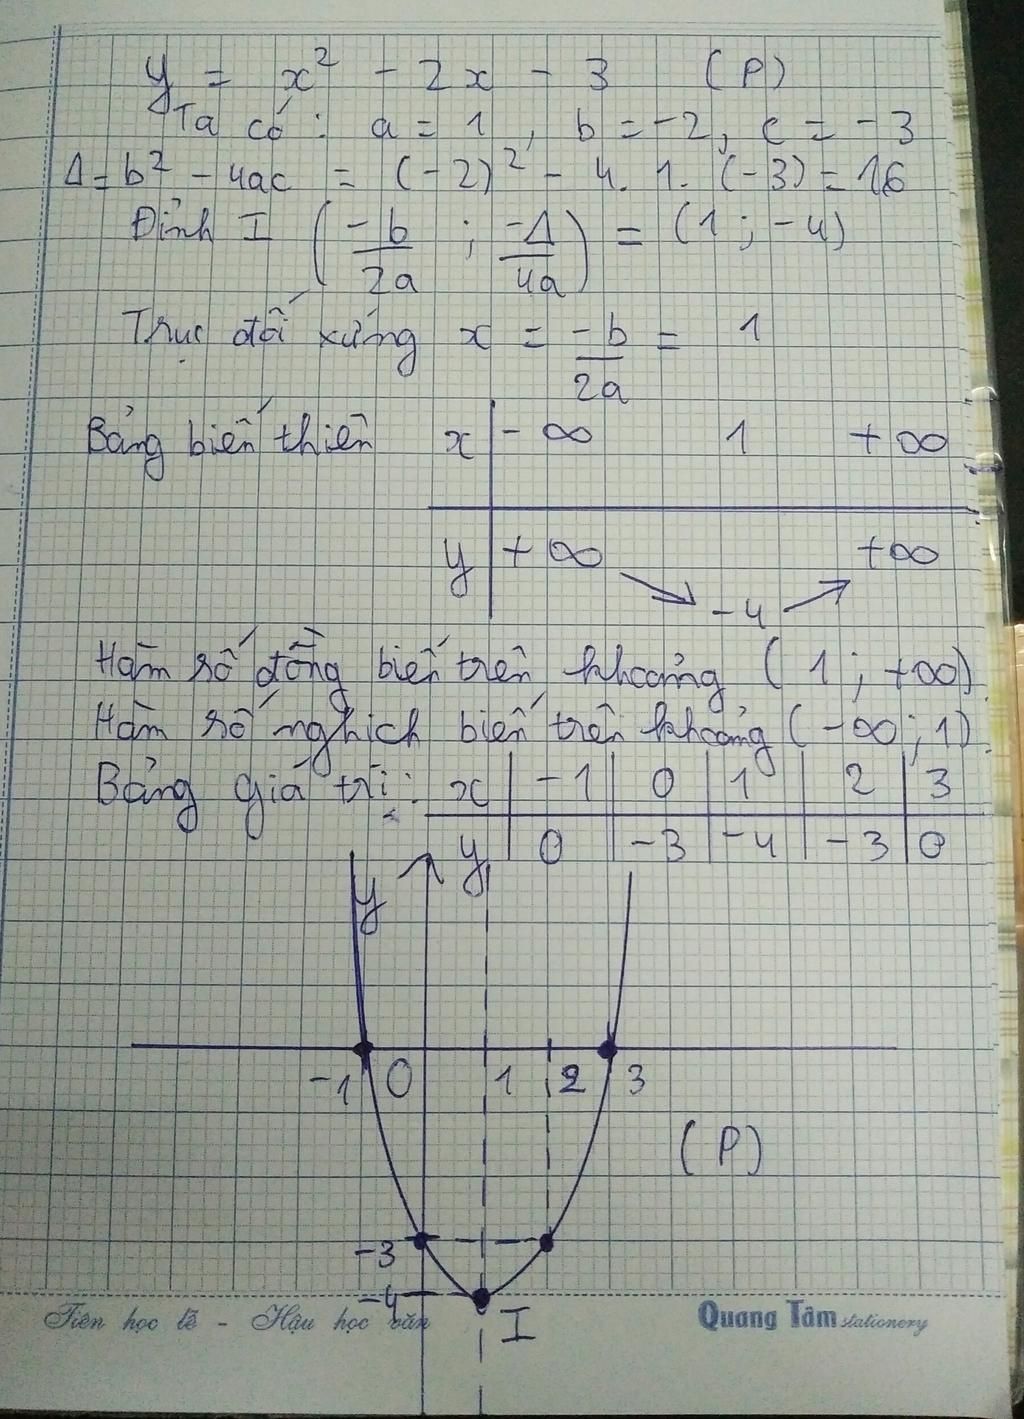 y = x² - 2x - 3 (P)
Ta có : a = 1 , b = -2, c = -3
Δ = b² - 4ac = (-2)² - 4. 1. (-3) = 16
Đỉnh I (-b/2a ; -Δ/4a) = (1 ; -4)
Trục đối xứng x = -b/2a = 1
Bảng biến thiên x -∞ 1 +∞
y +∞ ↘ -4 ↗ +∞
Hàm số đồng biến trên khoảng (1 ; +∞)
Hàm số nghịch biến trên khoảng (-∞ ; 1)
Bảng giá trị : x -1 0 1 2 3
y 0 -3 -4 -3 0
y
-1 0 1 2 3
(P)
-3
-4
I
Tiên học lễ - Hậu học văn Quang Tâm stationery